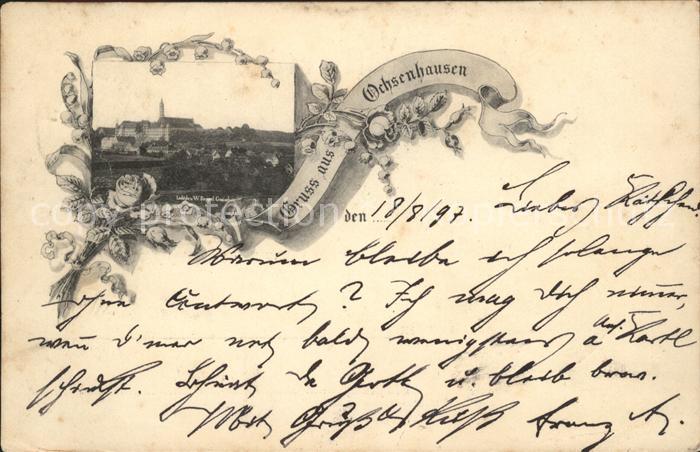 Gruss aus Ochsenhausen
den 18/8/97. Liebes Käthchen
Warum bleibe ich solange
ohne Antwort? Ich mag Dich nimmer,
wen d'mer net bald wenigstens a
Ans. Kartl
schickst. B'hüat di Gott u. bleib brav.
Mit Gruß u. Kuß Franz